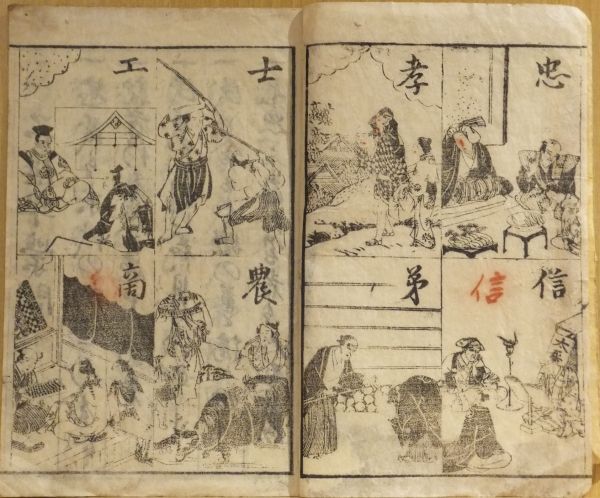 忠
孝
信
信
弟
士
工
農
商